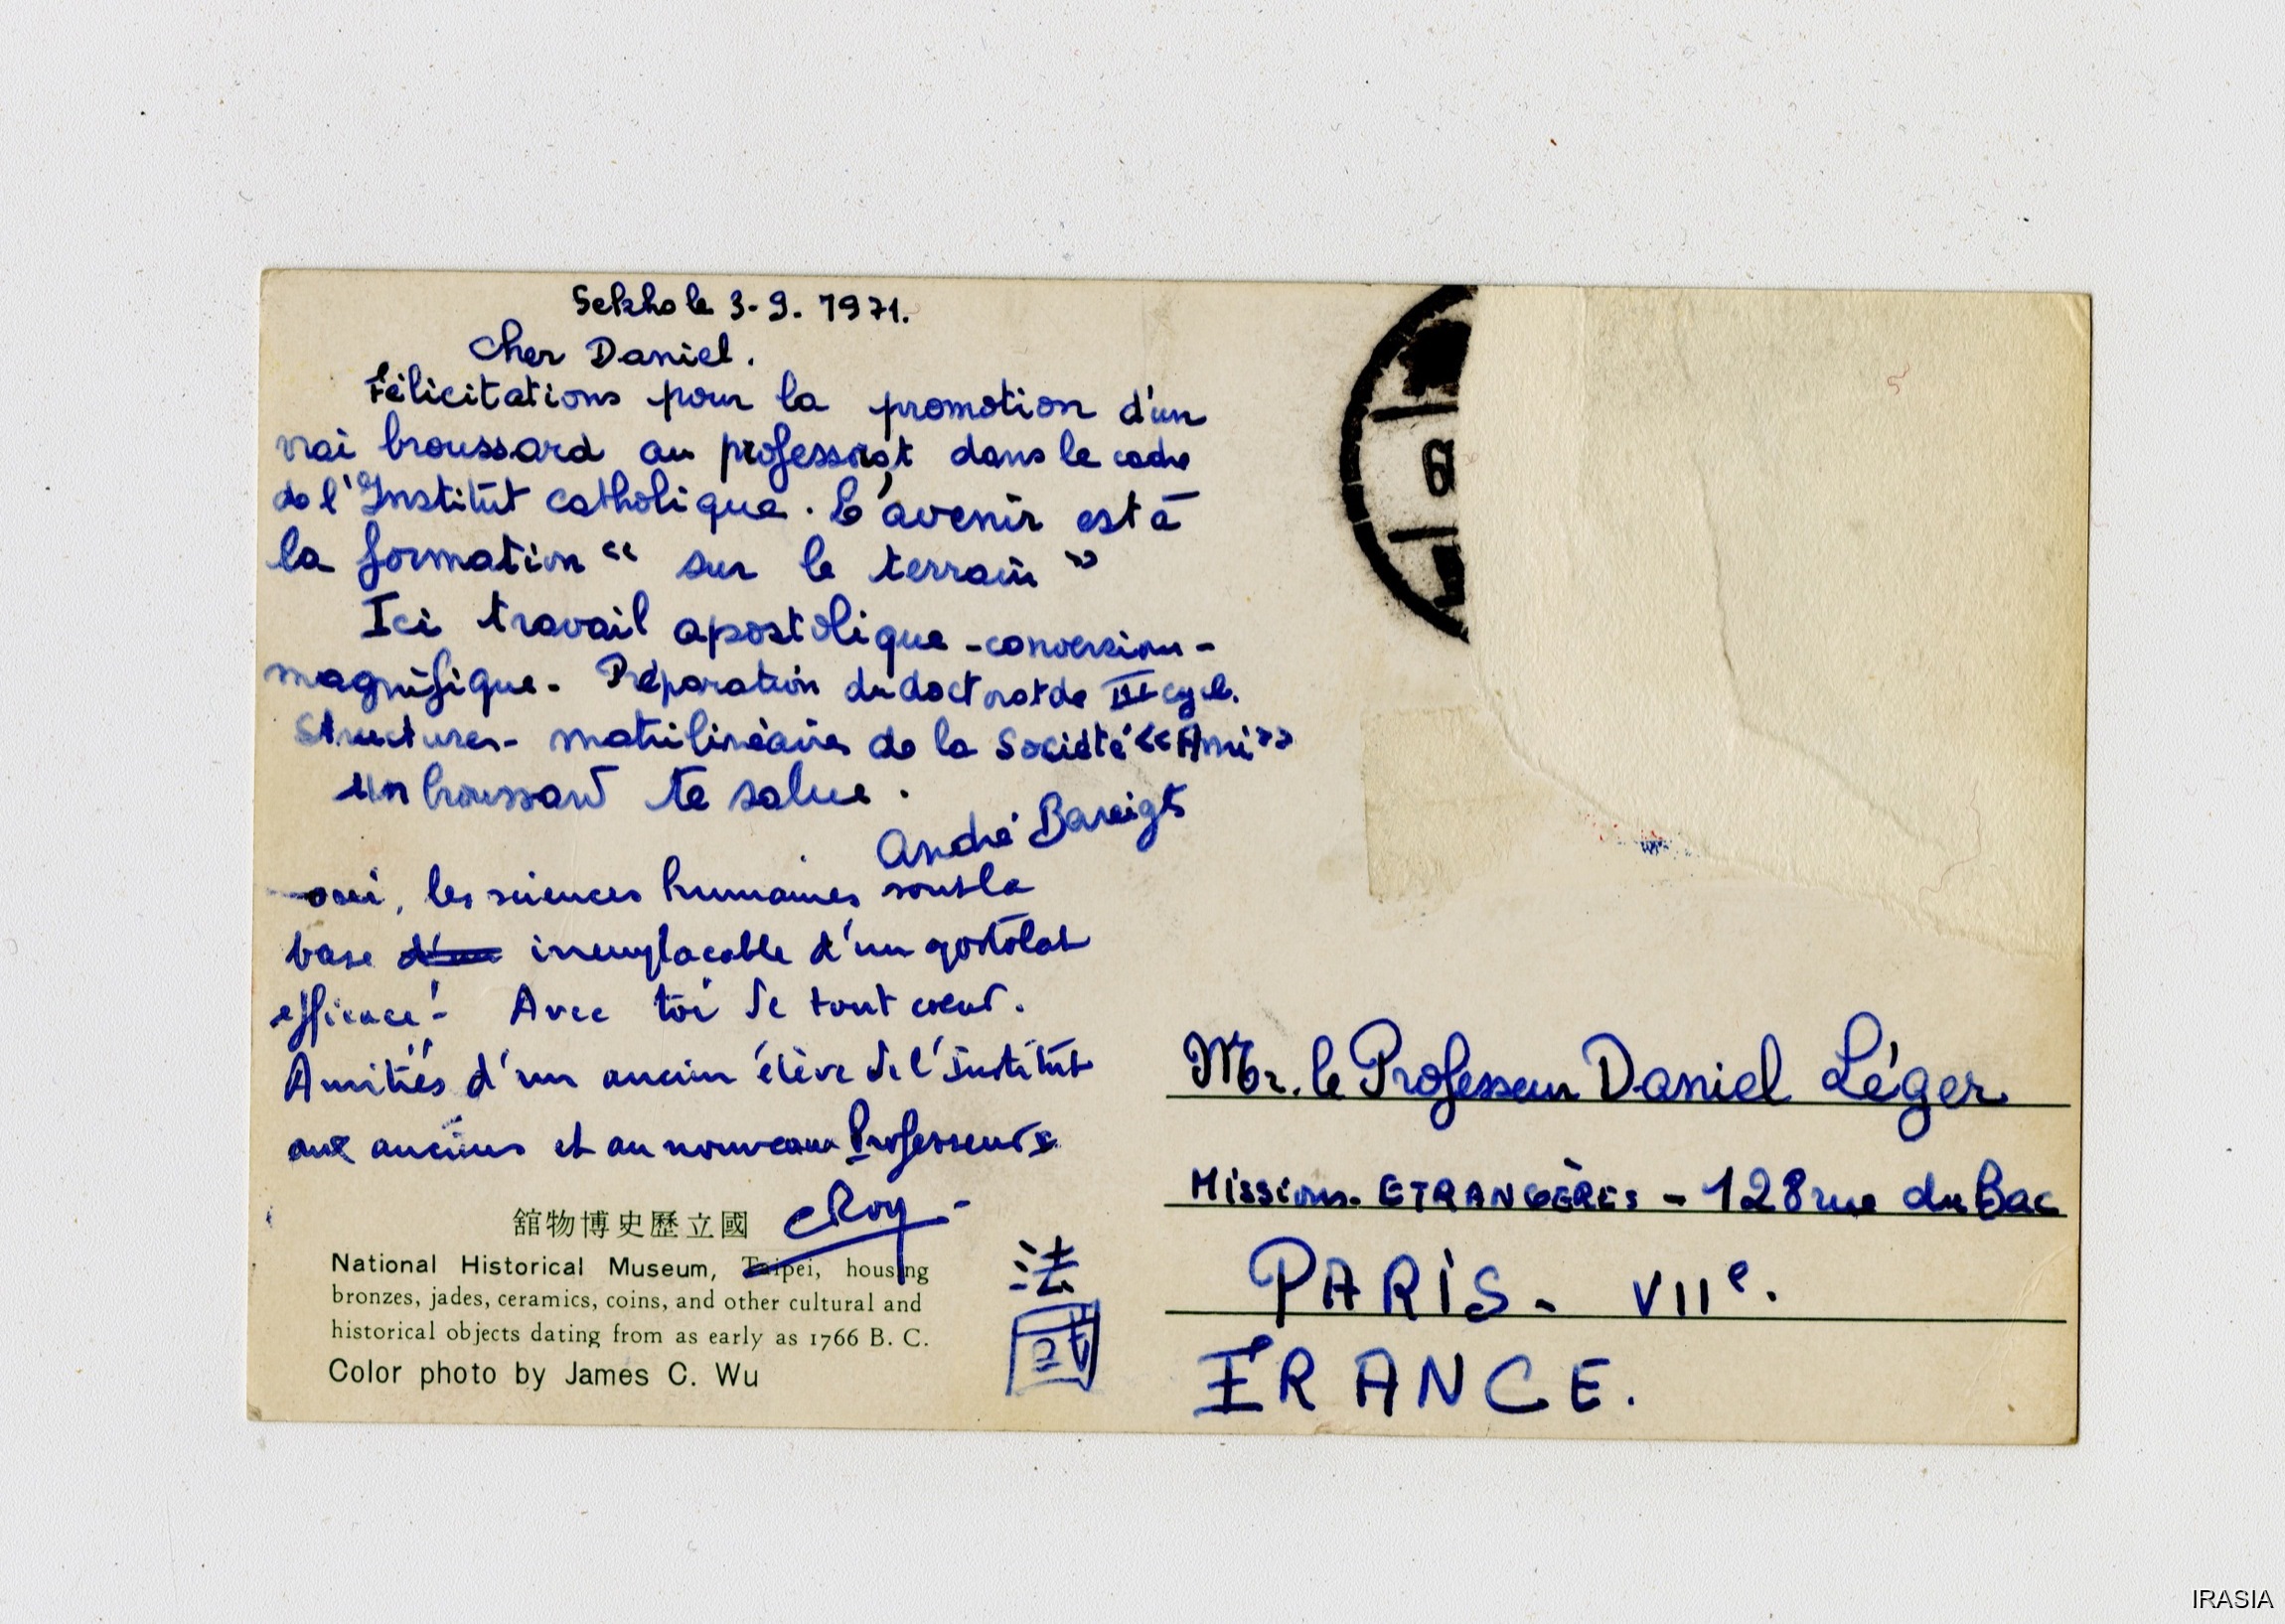 Sekho le 3-9. 1971.
Cher Daniel.
Félicitations pour la promotion d'un
vrai broussard au professorat dans le cadre
de l'Institut catholique. L'avenir est à
la formation « sur le terrain »
Ici travail apostolique - conversions -
magnifique. Préparation du doctorat de III cycle.
Structures - matrilinéaires de la Société « Ami »
Un broussard te salue.
André Bareigts
oui, les sciences humaines sont la
base irremplaçable d'un apostolat
efficace! Avec toi de tout cœur.
Amitiés d'un ancien élève de l'institut
aux anciens et au nouveau Professeurs
CRoy -
館物博史歷立國
National Historical Museum, Taipei, housing
bronzes, jades, ceramics, coins, and other cultural and
historical objects dating from as early as 1766 B. C.
Color photo by James C. Wu
法
國
Mr. le Professeur Daniel Léger
Missions ETRANGÈRES - 128 rue du Bac
PARIS - VIIe.
FRANCE.
IRASIA